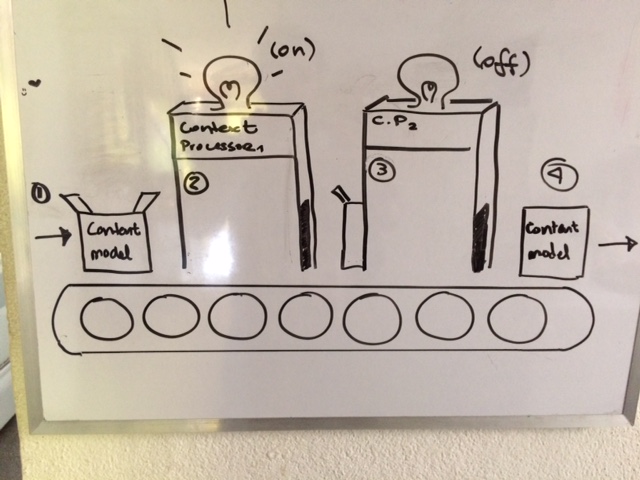 (on)
(off)
Context
Processor1
C.P2
1
2
3
4
Content
model
Content
model